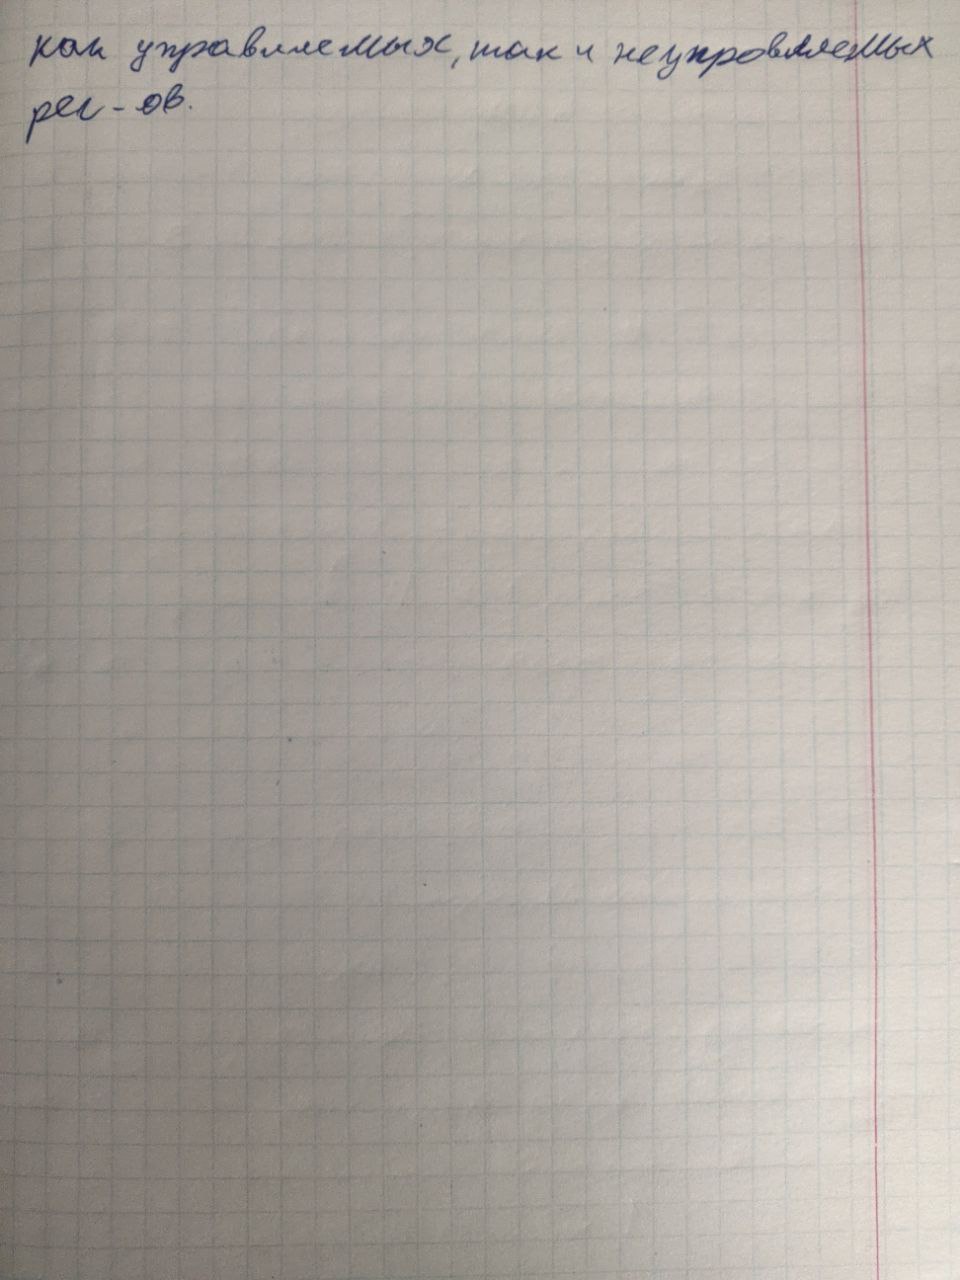 как управляемых, так и неуправляемых
рег-ов.